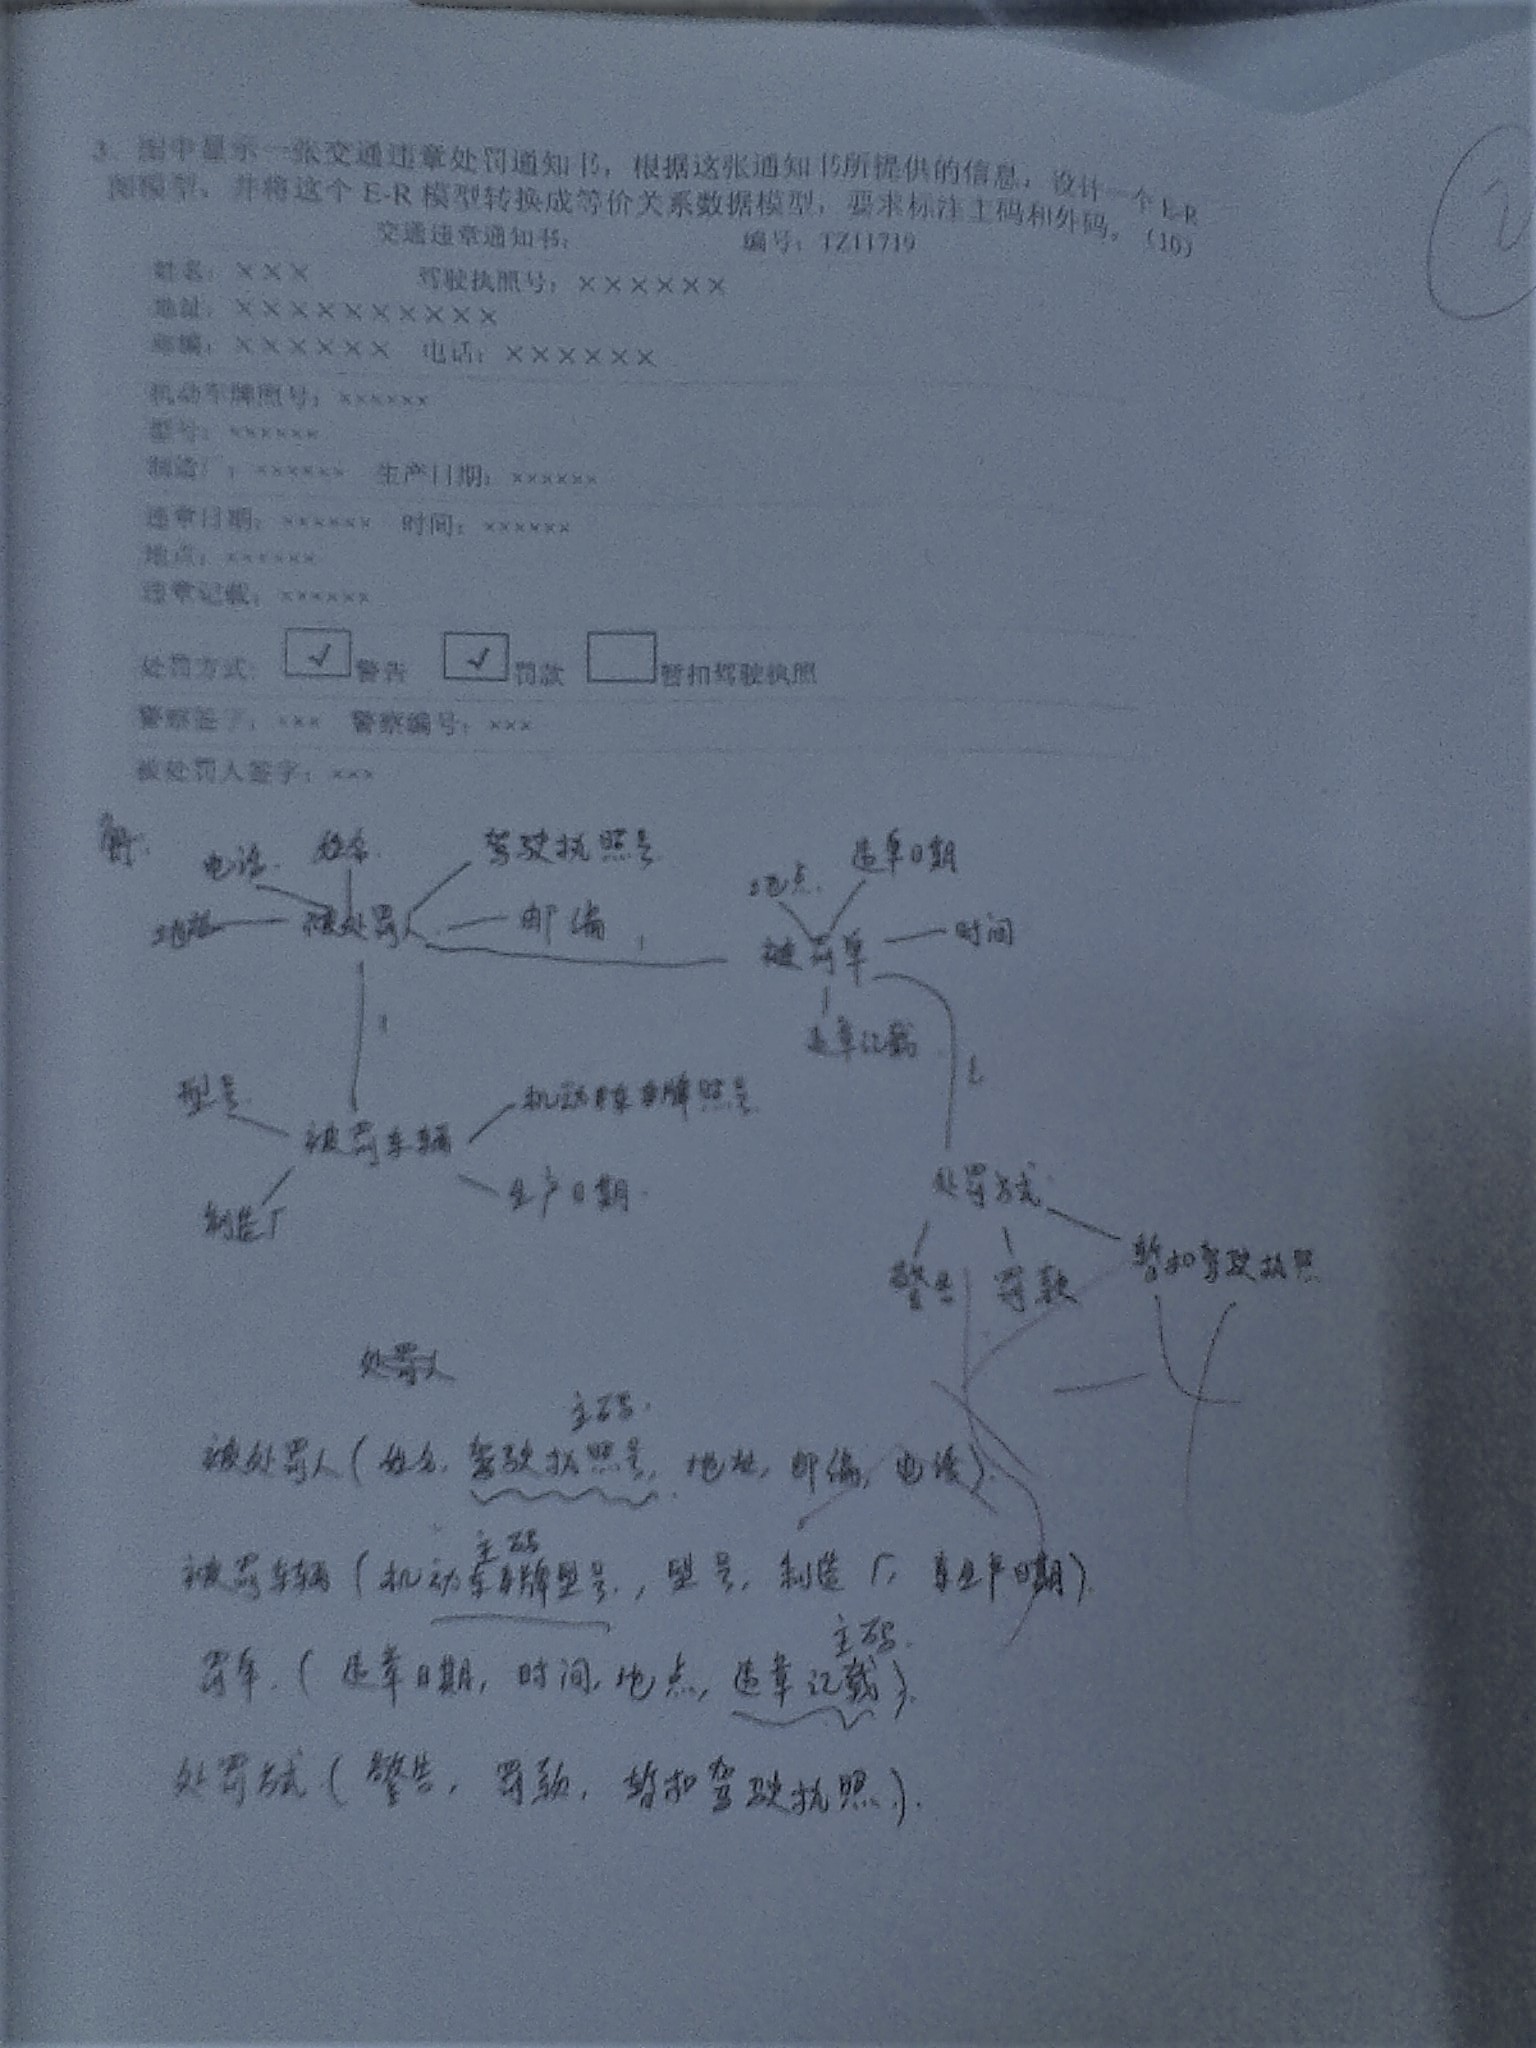 3. 图中显示一张交通违章处罚通知书，根据这张通知书所提供的信息，设计一个 E-R
图模型，并将这个 E-R 模型转换成等价关系数据模型，要求标注主码和外码。（10）
交通违章通知书： 编号：TZ11719
姓名：××× 驾驶执照号：××××××
地址：××××××××××
邮编：×××××× 电话：××××××
机动车牌照号：××××××
型号：××××××
制造厂：×××××× 生产日期：××××××
违章日期：×××××× 时间：××××××
地点：××××××
违章记载：××××××
处罚方式： ✓ 警告 ✓ 罚款 暂扣驾驶执照
警察签字：××× 警察编号：×××
被处罚人签字：×××
解:
电话. 姓名. 驾驶执照号
地点. 违章日期
地址 被处罚人 邮编 1
被罚单 时间
违章记载
1
型号 机动车车牌照号
1
被罚车辆
处罚方式
制造厂 生产日期.
警告 罚款 暂扣驾驶执照
-4
主码.
被处罚人 ( 姓名, 驾驶执照号, 地址, 邮编, 电话).
主码
被罚车辆 ( 机动车车牌型号, 型号, 制造厂, 生产日期).
主码.
罚单. ( 违章日期, 时间, 地点, 违章记载).
处罚方式 ( 警告, 罚款, 暂扣驾驶执照).